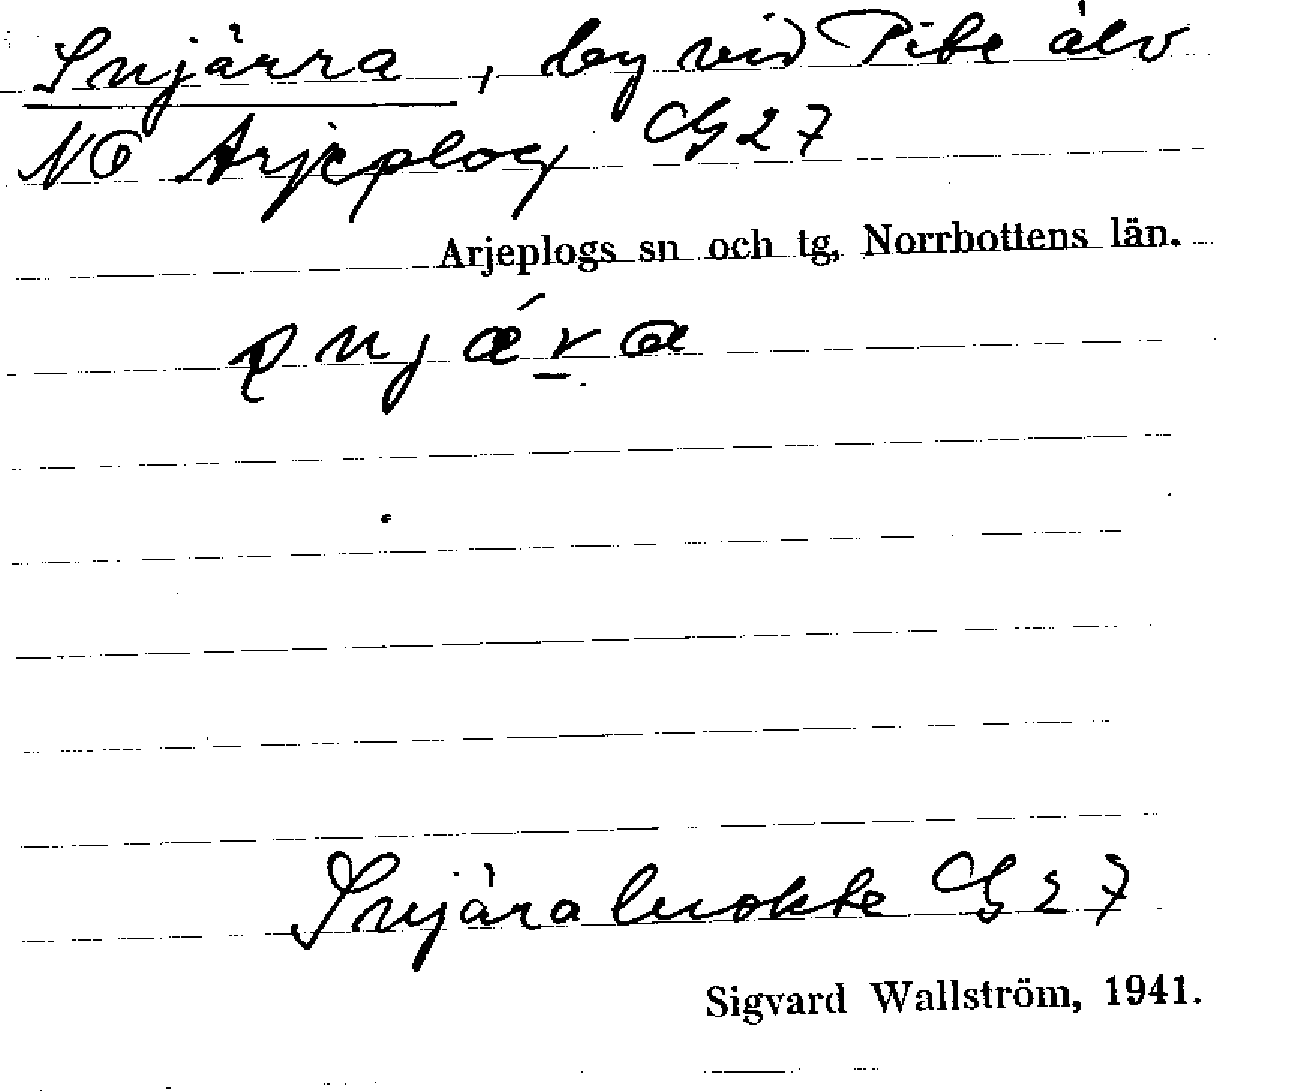 Snjärra, by vid Pite älv
NO Arjeplog G 27
Arjeplogs sn och tg, Norrbottens län.
Snjäraluokte G 27
Sigvard Wallström, 1941.